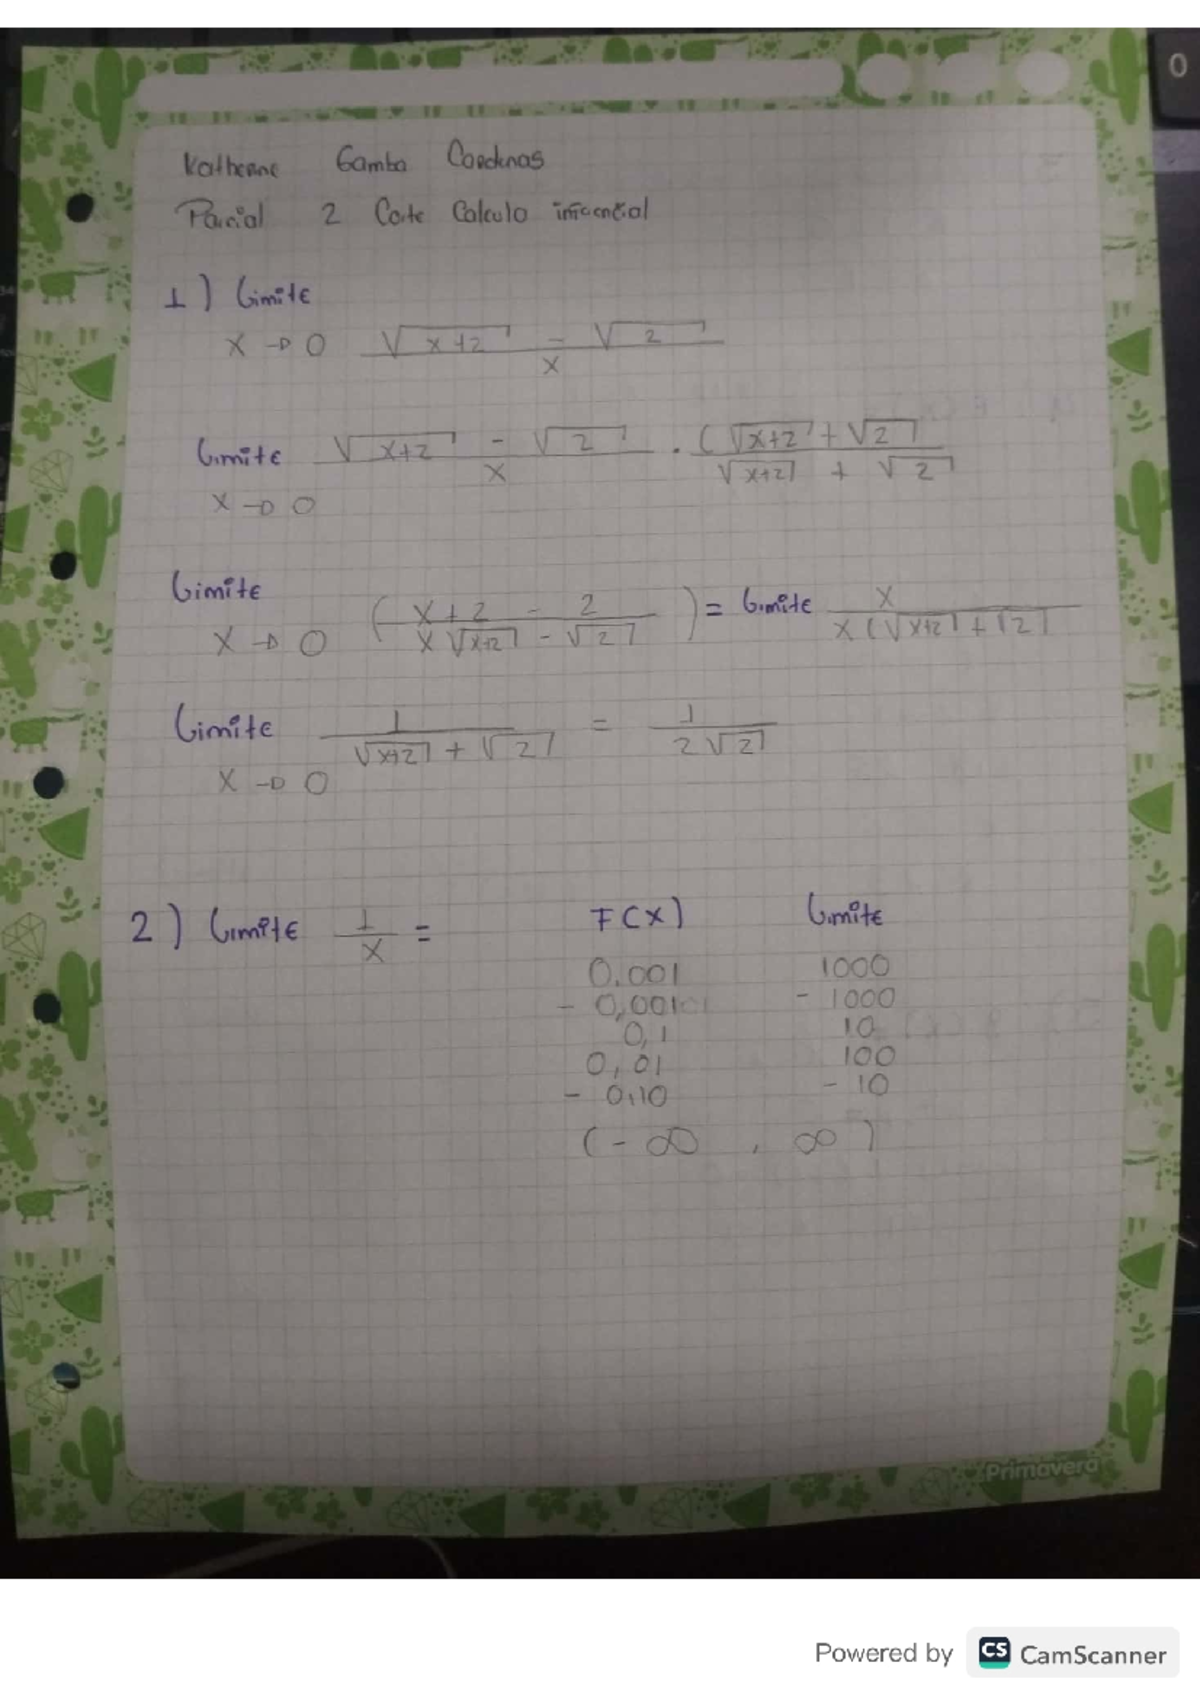 Katherine Gamba Cardenas
Parcial 2 Corte Calculo
1) Limite
x→0 √x+2 - √2 / x
Limite √x+2 - √2 / x · (√x+2 + √2 / √x+2 + √2
x→0
Limite
x→0 (x+2 - 2 / x√x+2 - √2) = Limite x / x(√x+2 + √2
Limite 1 / √x+2 + √2 = 1 / 2√2
x→0
2) Limite 1/x = F(x) Limite
0.001 1000
- 0,001 - 1000
0,1 10
0,01 100
- 0,10 - 10
(-∞ , ∞)
Primavera
0
Powered by CS CamScanner